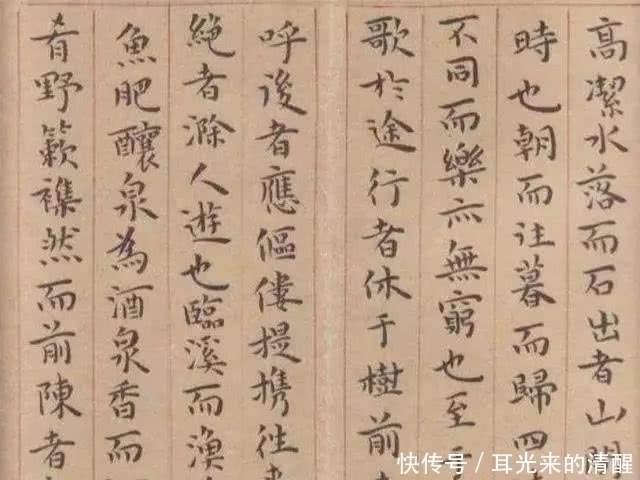 高潔水落而石出者山間
時也朝而往暮而歸四
不同而樂亦無窮也至
歌於途行者休于樹前
呼後者應傴僂提携往
絶者滁人遊也臨溪而漁
魚肥釀泉為酒泉香而
肴野簌襍然而前陳者
快传号 / 耳光来的清醒